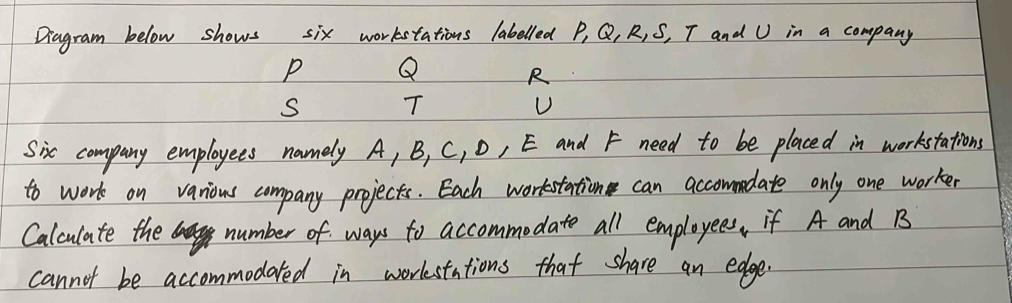 Diagram below shows six workstations labelled P, Q, R, S, T and U in a company
P Q R
S T U
Six company employees namely A, B, C, D, E and F need to be placed in workstations
to work on various company projects. Each workstation can accommodate only one worker
Calculate the number of ways to accommodate all employees, if A and B
cannot be accommodated in workstations that share an edge.